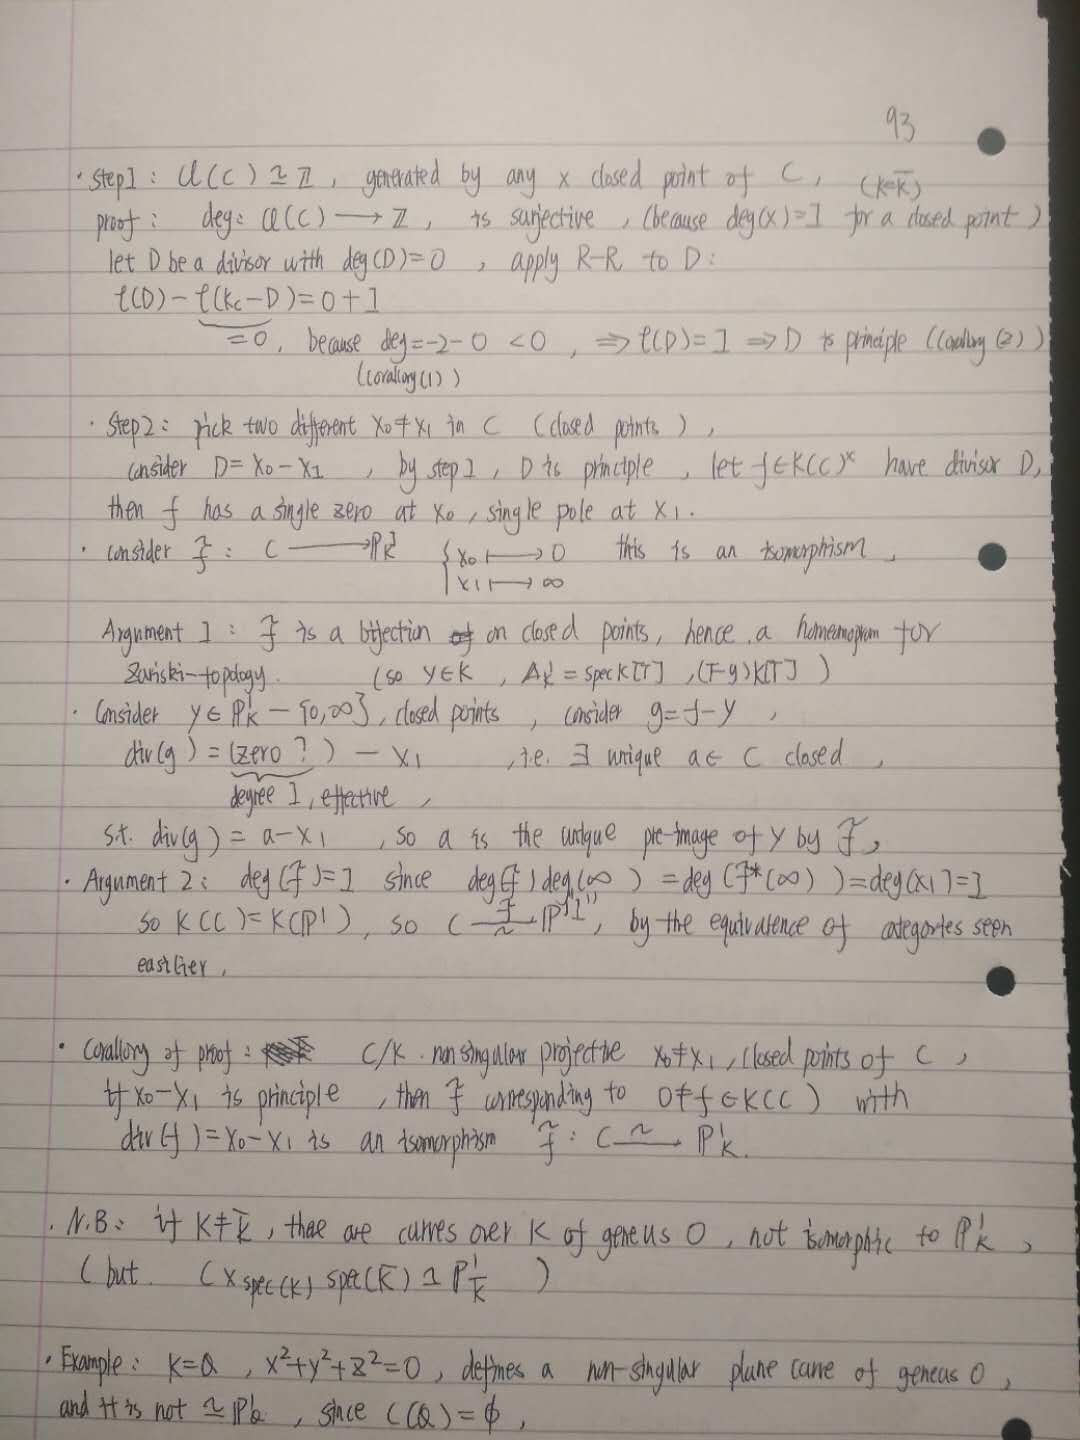 93
· Step1: Cl(C) ≃ ℤ, generated by any x closed point of C, (k=k̄)
proof: deg: Cl(C) ⟶ ℤ, is surjective, (because deg(x)=1 for a closed point)
let D be a divisor with deg(D)=0, apply R-R to D:
ℓ(D)-ℓ(Kc-D)=0+1
=0, because deg=-2-0<0, ⟹ ℓ(D)=1 ⟹ D is principle (Corallory(2))
(Corallory(1))
· Step2: pick two different x₀≠x₁ in C (closed points),
consider D=x₀-x₁, by step1, D is principle, let f∈K(C)ˣ have divisor D,
then f has a single zero at x₀, single pole at x₁.
· consider f̃: C ⟶ ℙ¹k { x₀ ⟼ 0 this is an isomorphism,
x₁ ⟼ ∞
Argument 1: f̃ is a bijection on closed points, hence a homeomorpism for
Zariski-topology. (so y∈k, A¹k = spec k[T], (T-y)k[T])
· Consider y∈ℙ¹k-{0,∞}, closed points, consider g=f-y,
div(g)=(zero?)-x₁, i.e. ∃ unique a∈C closed,
degree 1, effective,
s.t. div(g)=a-x₁, so a is the unique pre-image of y by f̃,
· Argument 2: deg(f̃)=1 since deg(f̃)deg(∞)=deg(f̃*(∞))=deg(x₁)=1
"1"
so K(C)=K(ℙ¹), so C ⥲ f̃ ℙ¹, by the equivalence of categories seen
eastlier,
· Corallory of proof: C/k nonsingular projective x₀≠x₁, closed points of C,
if x₀-x₁ is principle, then f̃ corresponding to 0≠f∈K(C) with
div(f)=x₀-x₁ is an isomorphism f̃: C ⥲ ℙ¹k.
· N.B: if k≠k̄, there are curves over k of geneus 0, not isomorphic to ℙ¹k,
(but C ×spec(k) spec(k̄) ≃ ℙ¹k̄)
· Example: k=ℚ, x²+y²+z²=0, defines a non-singular plane curve of geneus 0,
and it is not ≃ℙ¹ℚ, since C(ℚ)=ϕ,